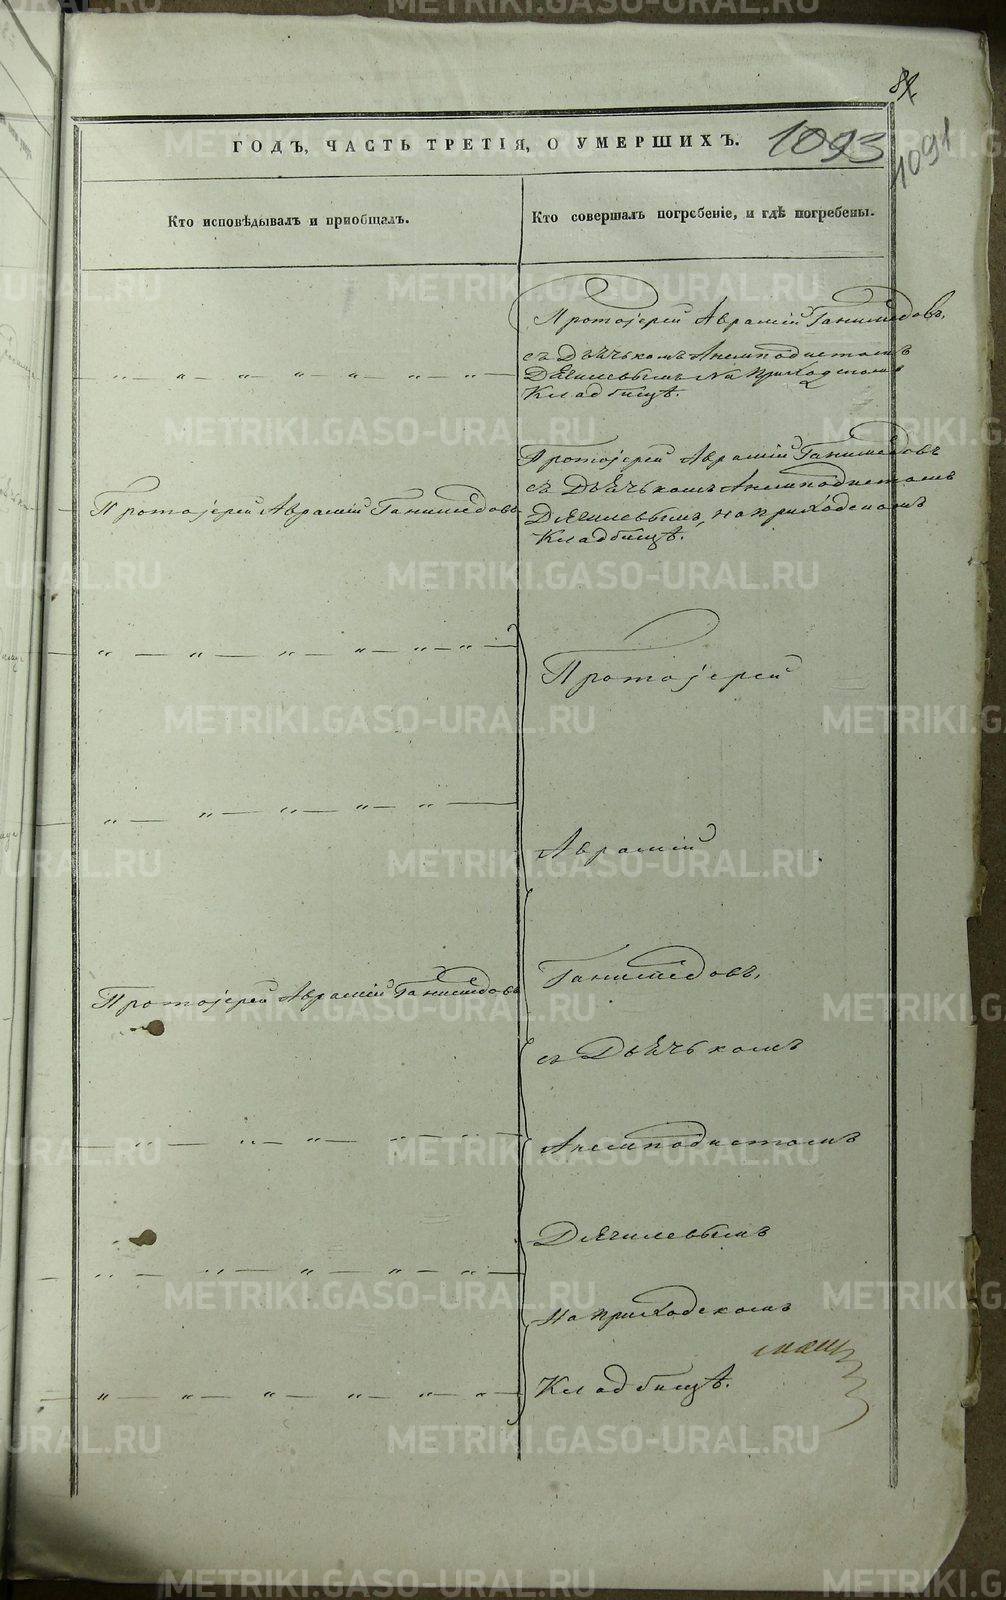 METRIKI.GASO-URAL.RU
ГОДЪ, ЧАСТЬ ТРЕТІЯ, О УМЕРШИХЪ.
1093
1091
Кто исповѣдывалъ и приобщалъ.
Кто совершалъ погребеніе, и гдѣ погребены.
Протоіерей Аврамій Ганимедовъ,
съ Дьячькомъ Анемподистомъ
Дягилевымъ на приходскомъ
Кладбищѣ.
Протоіерей Аврамій Ганимедовъ
Протоіерей Аврамій Ганимедовъ
съ Дьячькомъ Анемподистомъ
Дягилевымъ, на приходскомъ
Кладбищѣ.
Протоіерей
Аврамій
Протоіерей Аврамій Ганимедовъ
Ганимедовъ,
съ Дьячькомъ
Анемподистомъ
Дягилевымъ
на приходскомъ
Кладбищѣ.